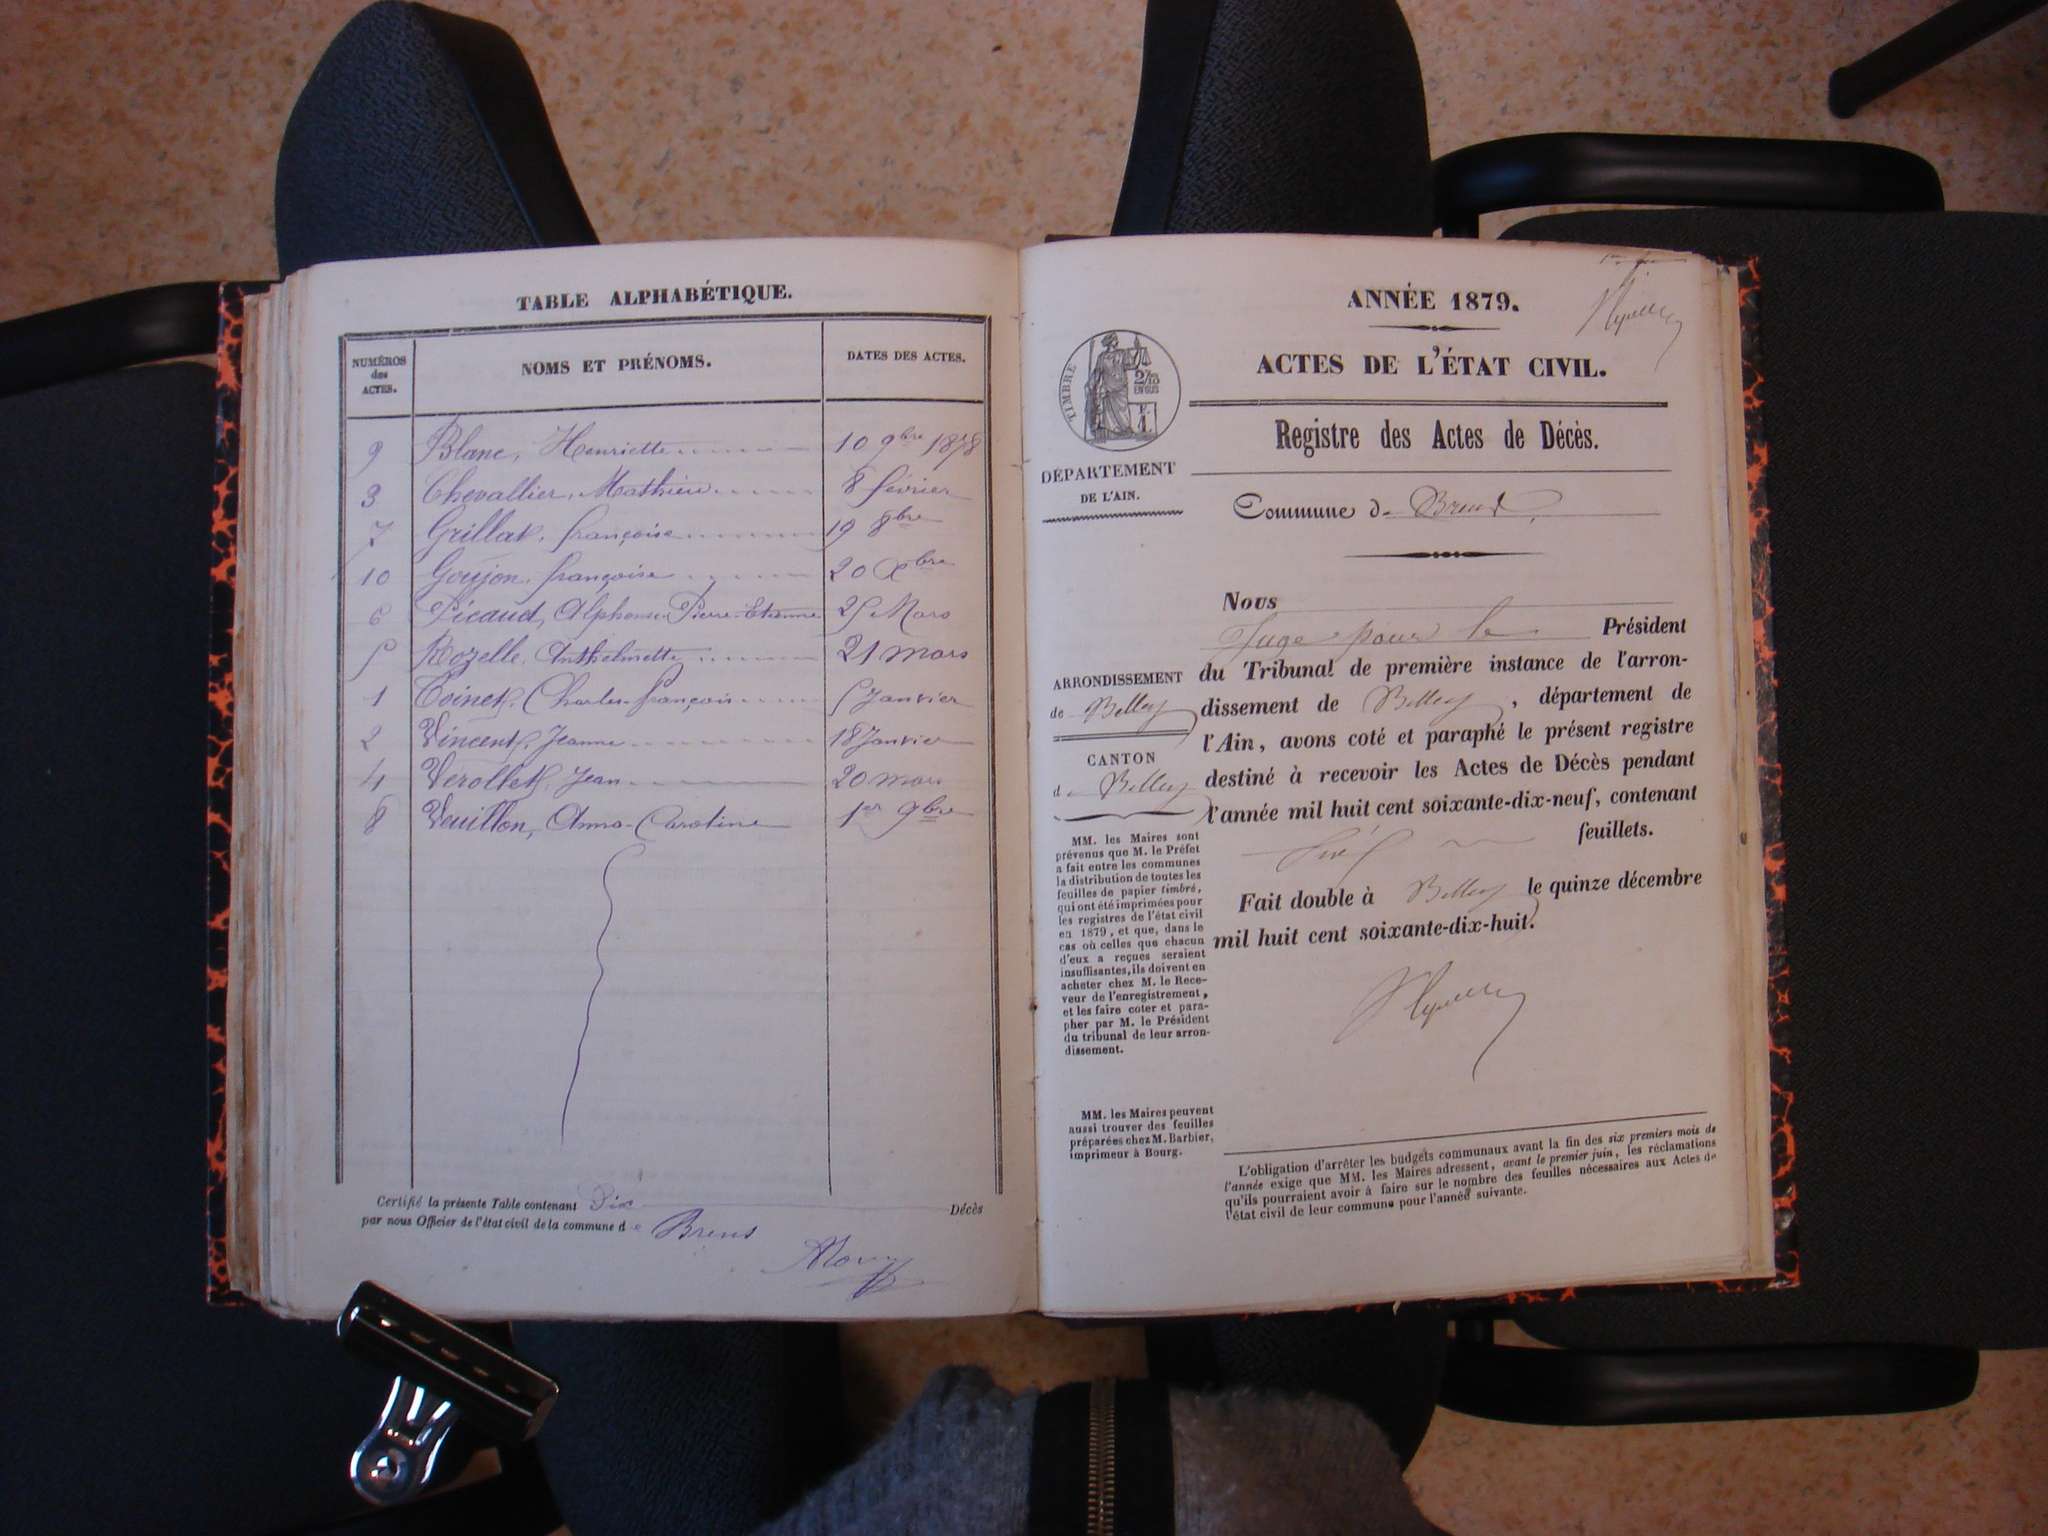 TABLE ALPHABÉTIQUE.
NUMÉROS
des
ACTES.
NOMS ET PRÉNOMS.
DATES DES ACTES.
9 Blanc, Henriette 10 9bre 1878
3 Chevallier, Mathieu 8 février
7 Grillat, françoise 19 8bre
10 Goujon, françoise 20 Xbre
6 Picaud, Alphonse-Pierre-Etienne 25 Mars
5 Rozelle, Anthelmette 21 mars
1 Coinet, Charles-françois 5 Janvier
2 Vincent, Jeanne 18 Janvier
4 Verollet, Jean 20 mars
8 Veuillon, Anna-Caroline 1er 9bre
Certifié la présente Table contenant Dix Décès
par nous Officier de l'état civil de la commune de Brens
ANNÉE 1879.
ACTES DE L'ÉTAT CIVIL.
Registre des Actes de Décès.
TIMBRE
2/10
EN SUS
DÉPARTEMENT
DE L'AIN.
Commune de Brens
ARRONDISSEMENT
de Belley
CANTON
de Belley
MM. les Maires sont
prévenus que M. le Préfet
a fait entre les communes
la distribution de toutes les
feuilles de papier timbré,
qui ont été imprimées pour
les registres de l'état civil
en 1879, et que, dans le
cas où celles que chacun
d'eux a reçues seraient
insuffisantes, ils doivent en
acheter chez M. le Rece-
veur de l'enregistrement,
et les faire coter et para-
pher par M. le Président
du tribunal de leur arron-
dissement.
MM. les Maires peuvent
aussi trouver des feuilles
préparées chez M. Barbier,
imprimeur à Bourg.
Nous
Juge pour le Président
du Tribunal de première instance de l'arron-
dissement de Belley, département de
l'Ain, avons coté et paraphé le présent registre
destiné à recevoir les Actes de Décès pendant
l'année mil huit cent soixante-dix-neuf, contenant
feuillets.
Fait double à Belley le quinze décembre
mil huit cent soixante-dix-huit.
L'obligation d'arrêter les budgets communaux avant la fin des six premiers mois de
l'année exige que MM. les Maires adressent, avant le premier juin, les réclamations
qu'ils pourraient avoir à faire sur le nombre des feuilles nécessaires aux Actes de
l'état civil de leur commune pour l'année suivante.